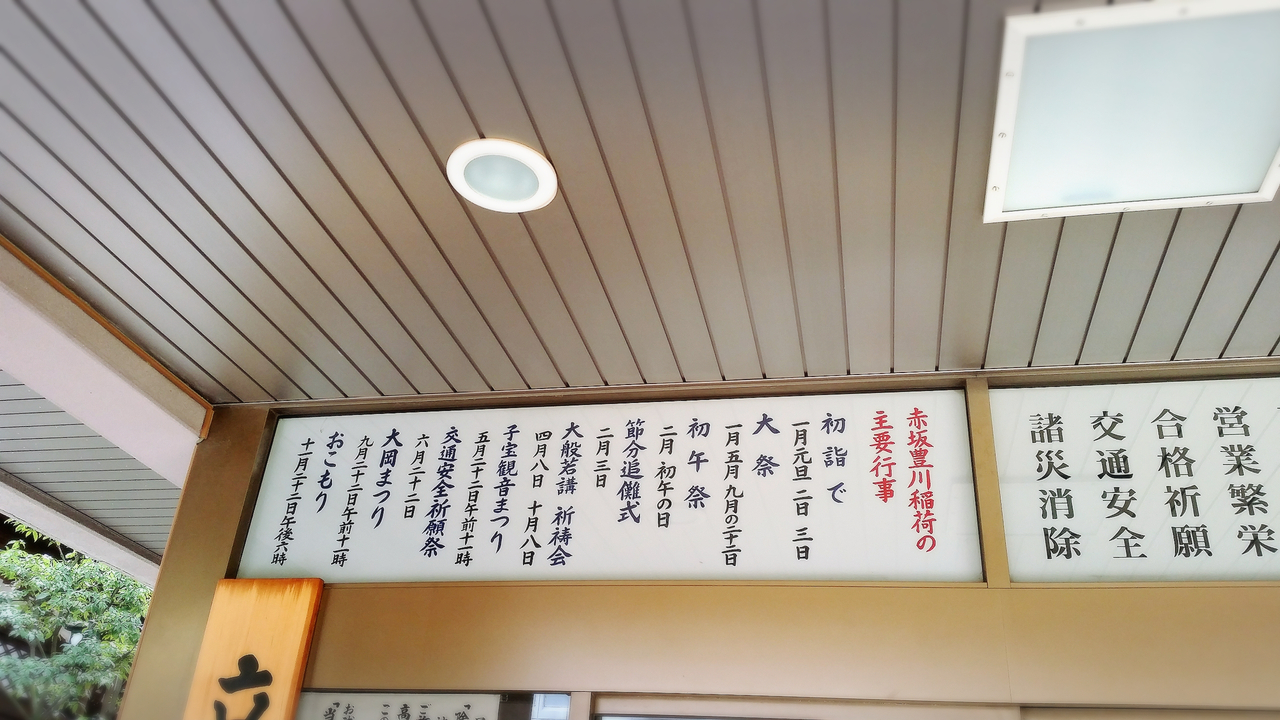 営業繁栄
合格祈願
交通安全
諸災消除
赤坂豊川稲荷の
主要行事
初詣で
一月元旦 二日 三日
大祭
一月五月 九月の二十二日
初午祭
二月 初午の日
節分追儺式
二月三日
大般若講 祈祷会
四月八日 十月八日
子宝観音まつり
五月二十二日午前十一時
交通安全祈願祭
六月二十二日
大岡まつり
九月二十二日午前十一時
おこもり
十一月二十二日午後六時